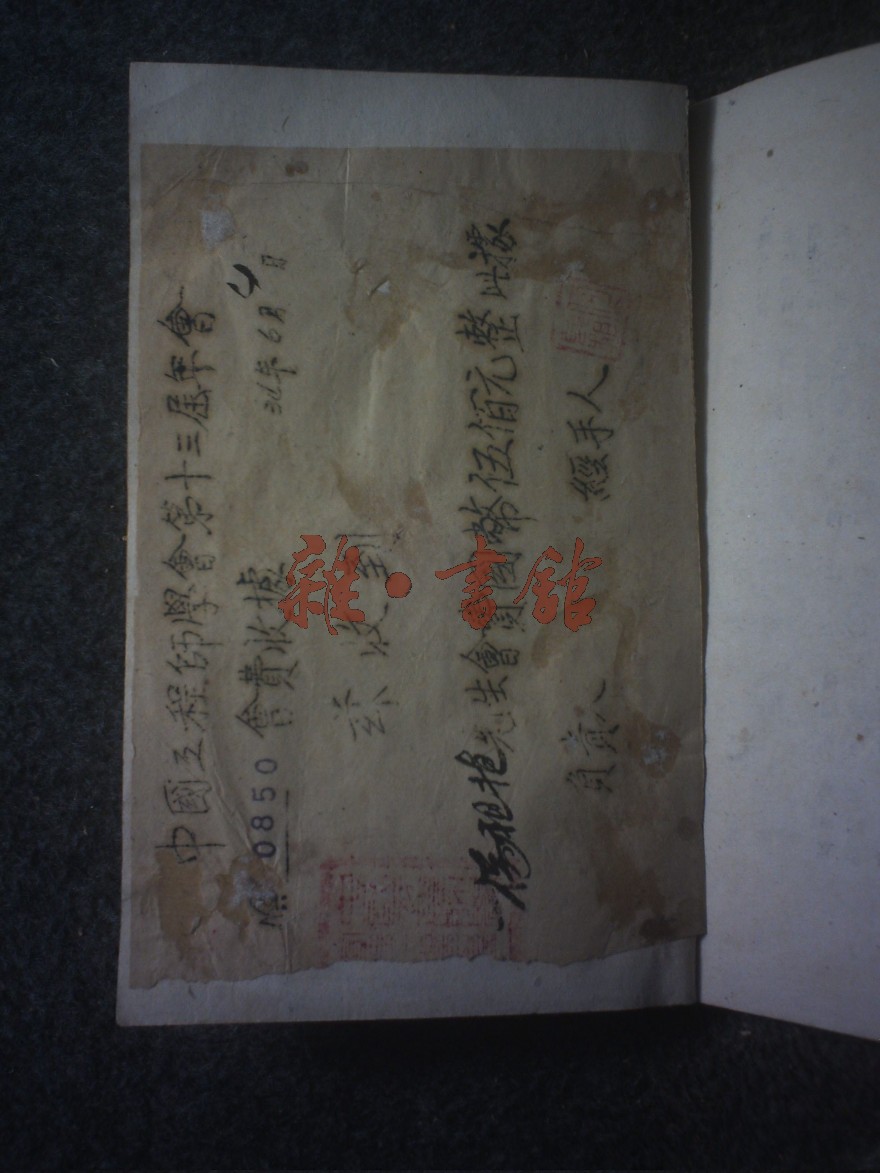 中國工程師學會第十三屆年會
No. 0850 會費收據 34年6月4日
茲收到
先生會費國幣伍佰元整此據
負責人 經手人
雜·書館